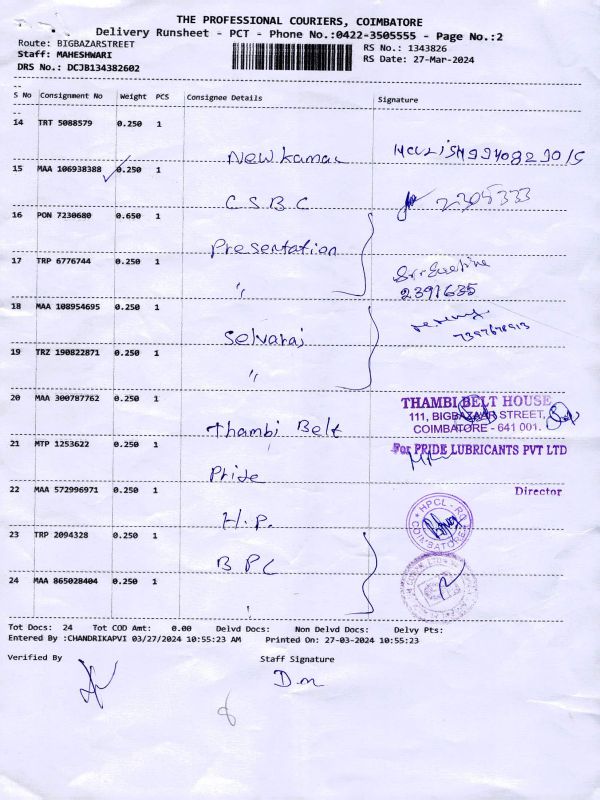 THE PROFESSIONAL COURIERS, COIMBATORE
Delivery Runsheet - PCT - Phone No.:0422-3505555 - Page No.:2
Route: BIGBAZARSTREET RS No.: 1343826
Staff: MAHESHWARI RS Date: 27-Mar-2024
DRS No.: DCJB134382602
S No Consignment No Weight PCS Consignee Details Signature
14 TRT 5088579 0.250 1
New kamal
15 MAA 106938388 0.250 1
C S B C 2305333
16 PON 7230680 0.650 1
Presentation
17 TRP 6776744 0.250 1
" 2391635
18 MAA 108954695 0.250 1
Selvaraj
19 TRZ 190822871 0.250 1
"
20 MAA 300787762 0.250 1 THAMBI BELT HOUSE
111, BIGBAZAAR STREET,
Thambi Belt COIMBATORE - 641 001.
21 MTP 1253622 0.250 1 For PRIDE LUBRICANTS PVT LTD
Pride
22 MAA 572996971 0.250 1 Director
H.P. HPCL - RO COIMBATORE
23 TRP 2094328 0.250 1
B P C
24 MAA 865028404 0.250 1
Tot Docs: 24 Tot COD Amt: 0.00 Delvd Docs: Non Delvd Docs: Delvy Pts:
Entered By :CHANDRIKAPVI 03/27/2024 10:55:23 AM Printed On: 27-03-2024 10:55:23
Verified By Staff Signature
D.m